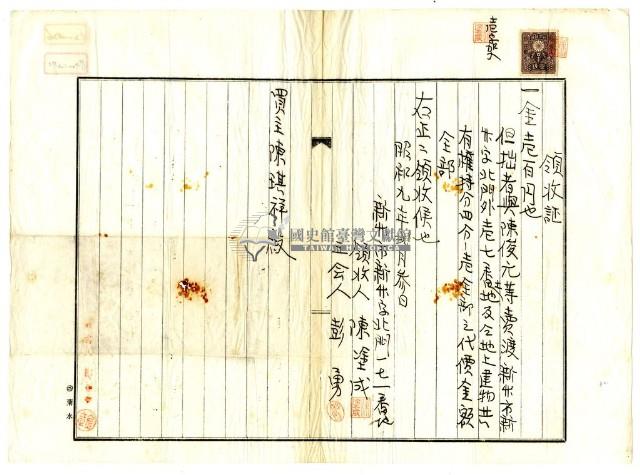 領收証
一金壱百円也
但拙者與陳俊元等賣渡新竹市新
竹字北門外壱七番地及仝地上建物共
有權持分四分ノ壱全部之代價金額
全部
右正ニ領收候也
昭和九年 月参日
新竹市新竹字北門一七一番地
領收人 陳塗成
立会人 彭勇
買主陳琪祥殿
國史館臺灣文獻館
TAIWAN HISTORICA